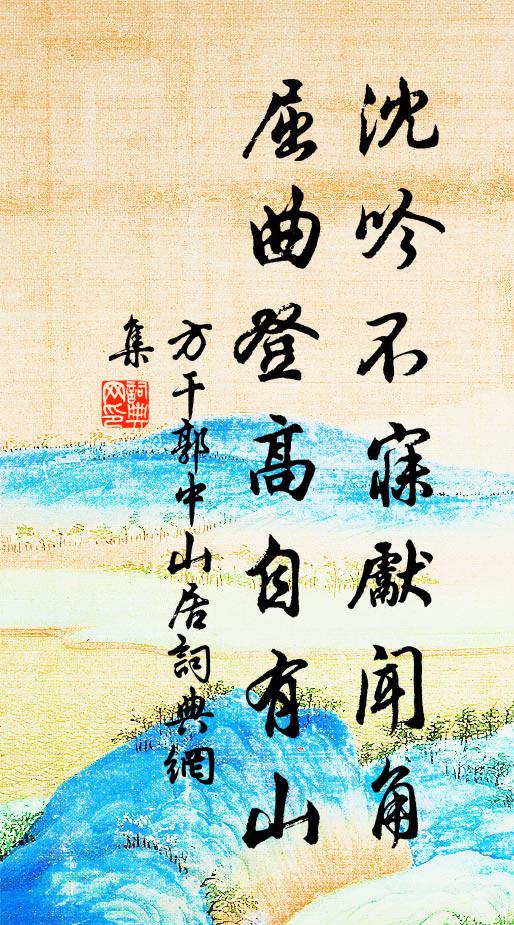 沈吟不寐獻聞角
屈曲登高自有山
方干郭中山居詞典網
集
詞典
网印